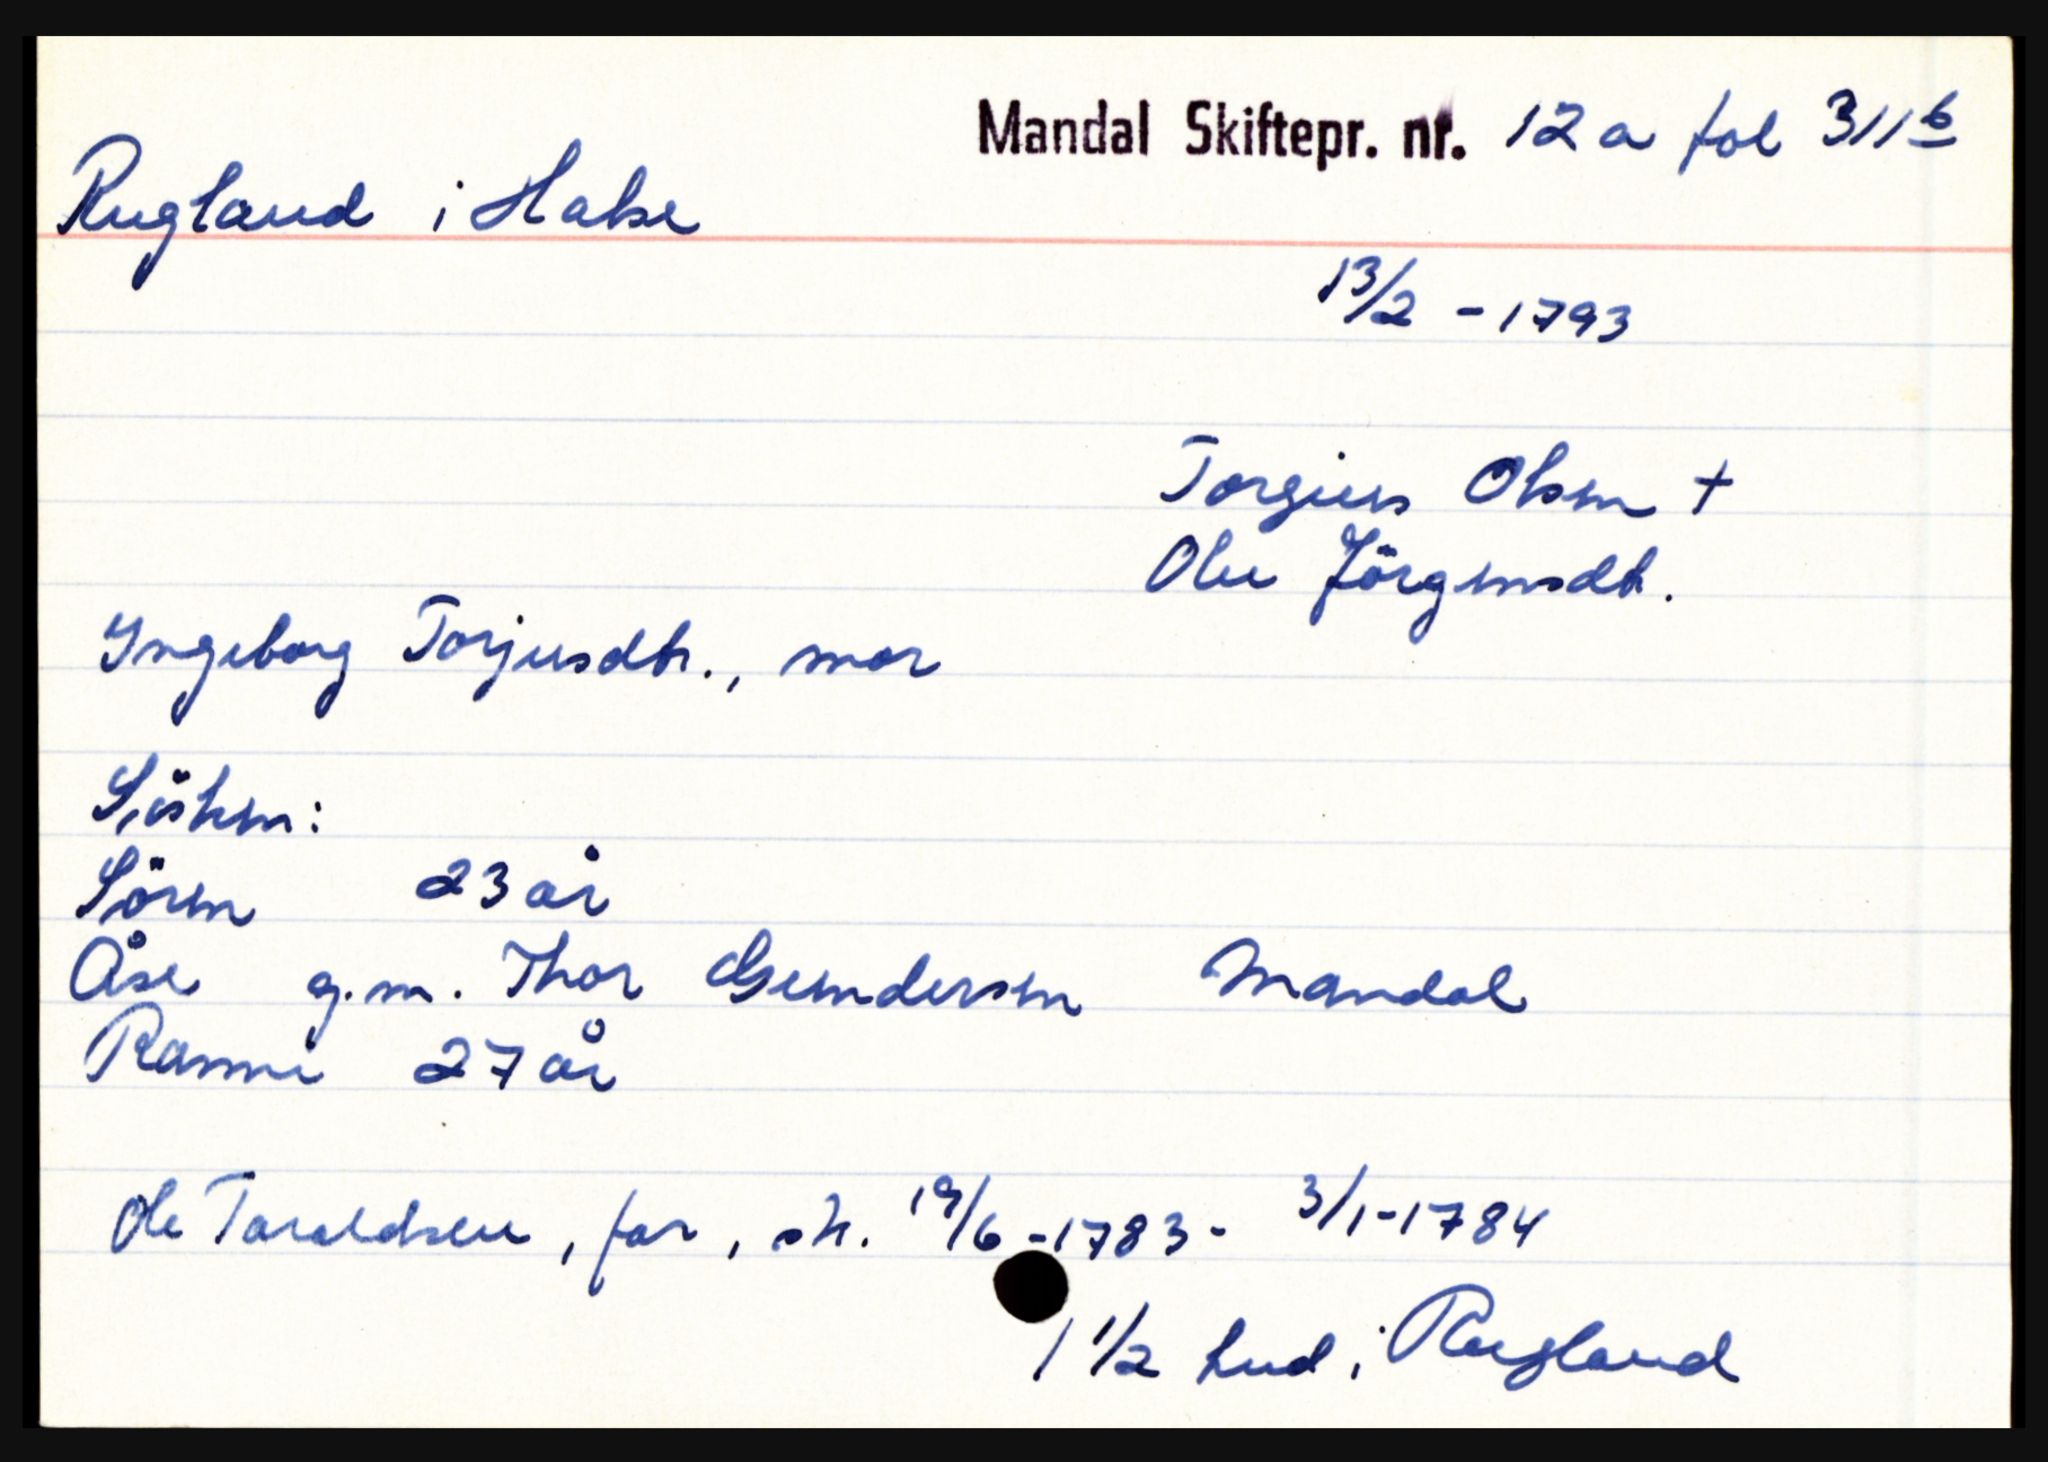 Mandal Skiftepr. nr. 12 a fol 311 b
Rugland i Halse
13/2 - 1793
Torgius Olsen +
Olu Jörgensdtr.
Ingeborg Torjusdtr., mor
Sösken:
Sören 23 år
Åse g.m. Thor Gundersen Mandal
Ranni 27 år
Ole Taraldsen, far, sk. 19/6 - 1783 - 3/1 - 1784
1 1/2 hud i Rugland